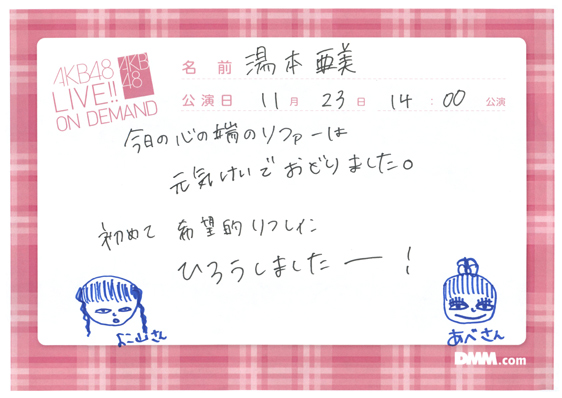 AKB48
LIVE!!
ON DEMAND
AKB
48
名前 湯本亜美
公演日 11月 23日 14:00 公演
今日の心の端のソファーは
元気けいでおどりました。
初めて 希望的リフレイン
ひろうしましたー!
よこ山さん
あべさん
DMM.com